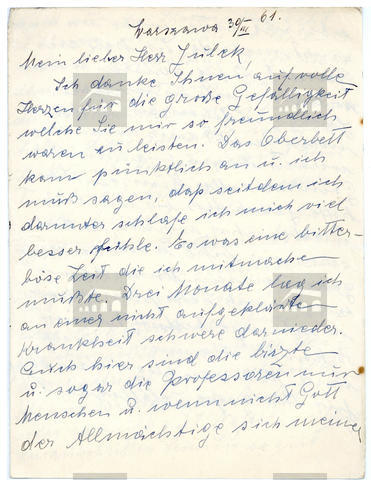 Warszawa 30/III 61.
Mein lieber Herr Julek,
Ich danke Ihnen auf volle
Herzen für die große Gefälligkeit
welche Sie mir so freundlich
waren zu leisten. Das Oberbett
kam pünktlich an u. ich
muß sagen, daß seitdem ich
darunter schlafe ich mich viel
besser fühle. Es was eine bitter-
böse Zeit die ich mitmachen
müßte. Drei Monate lag ich
an einer nicht aufgeklärten
Krankheit schwere darnieder.
Auch hier sind die Ärzte
u. sogar die Professoren nur
Menschen u. wenn nicht Gott
der Allmächtige sich meiner